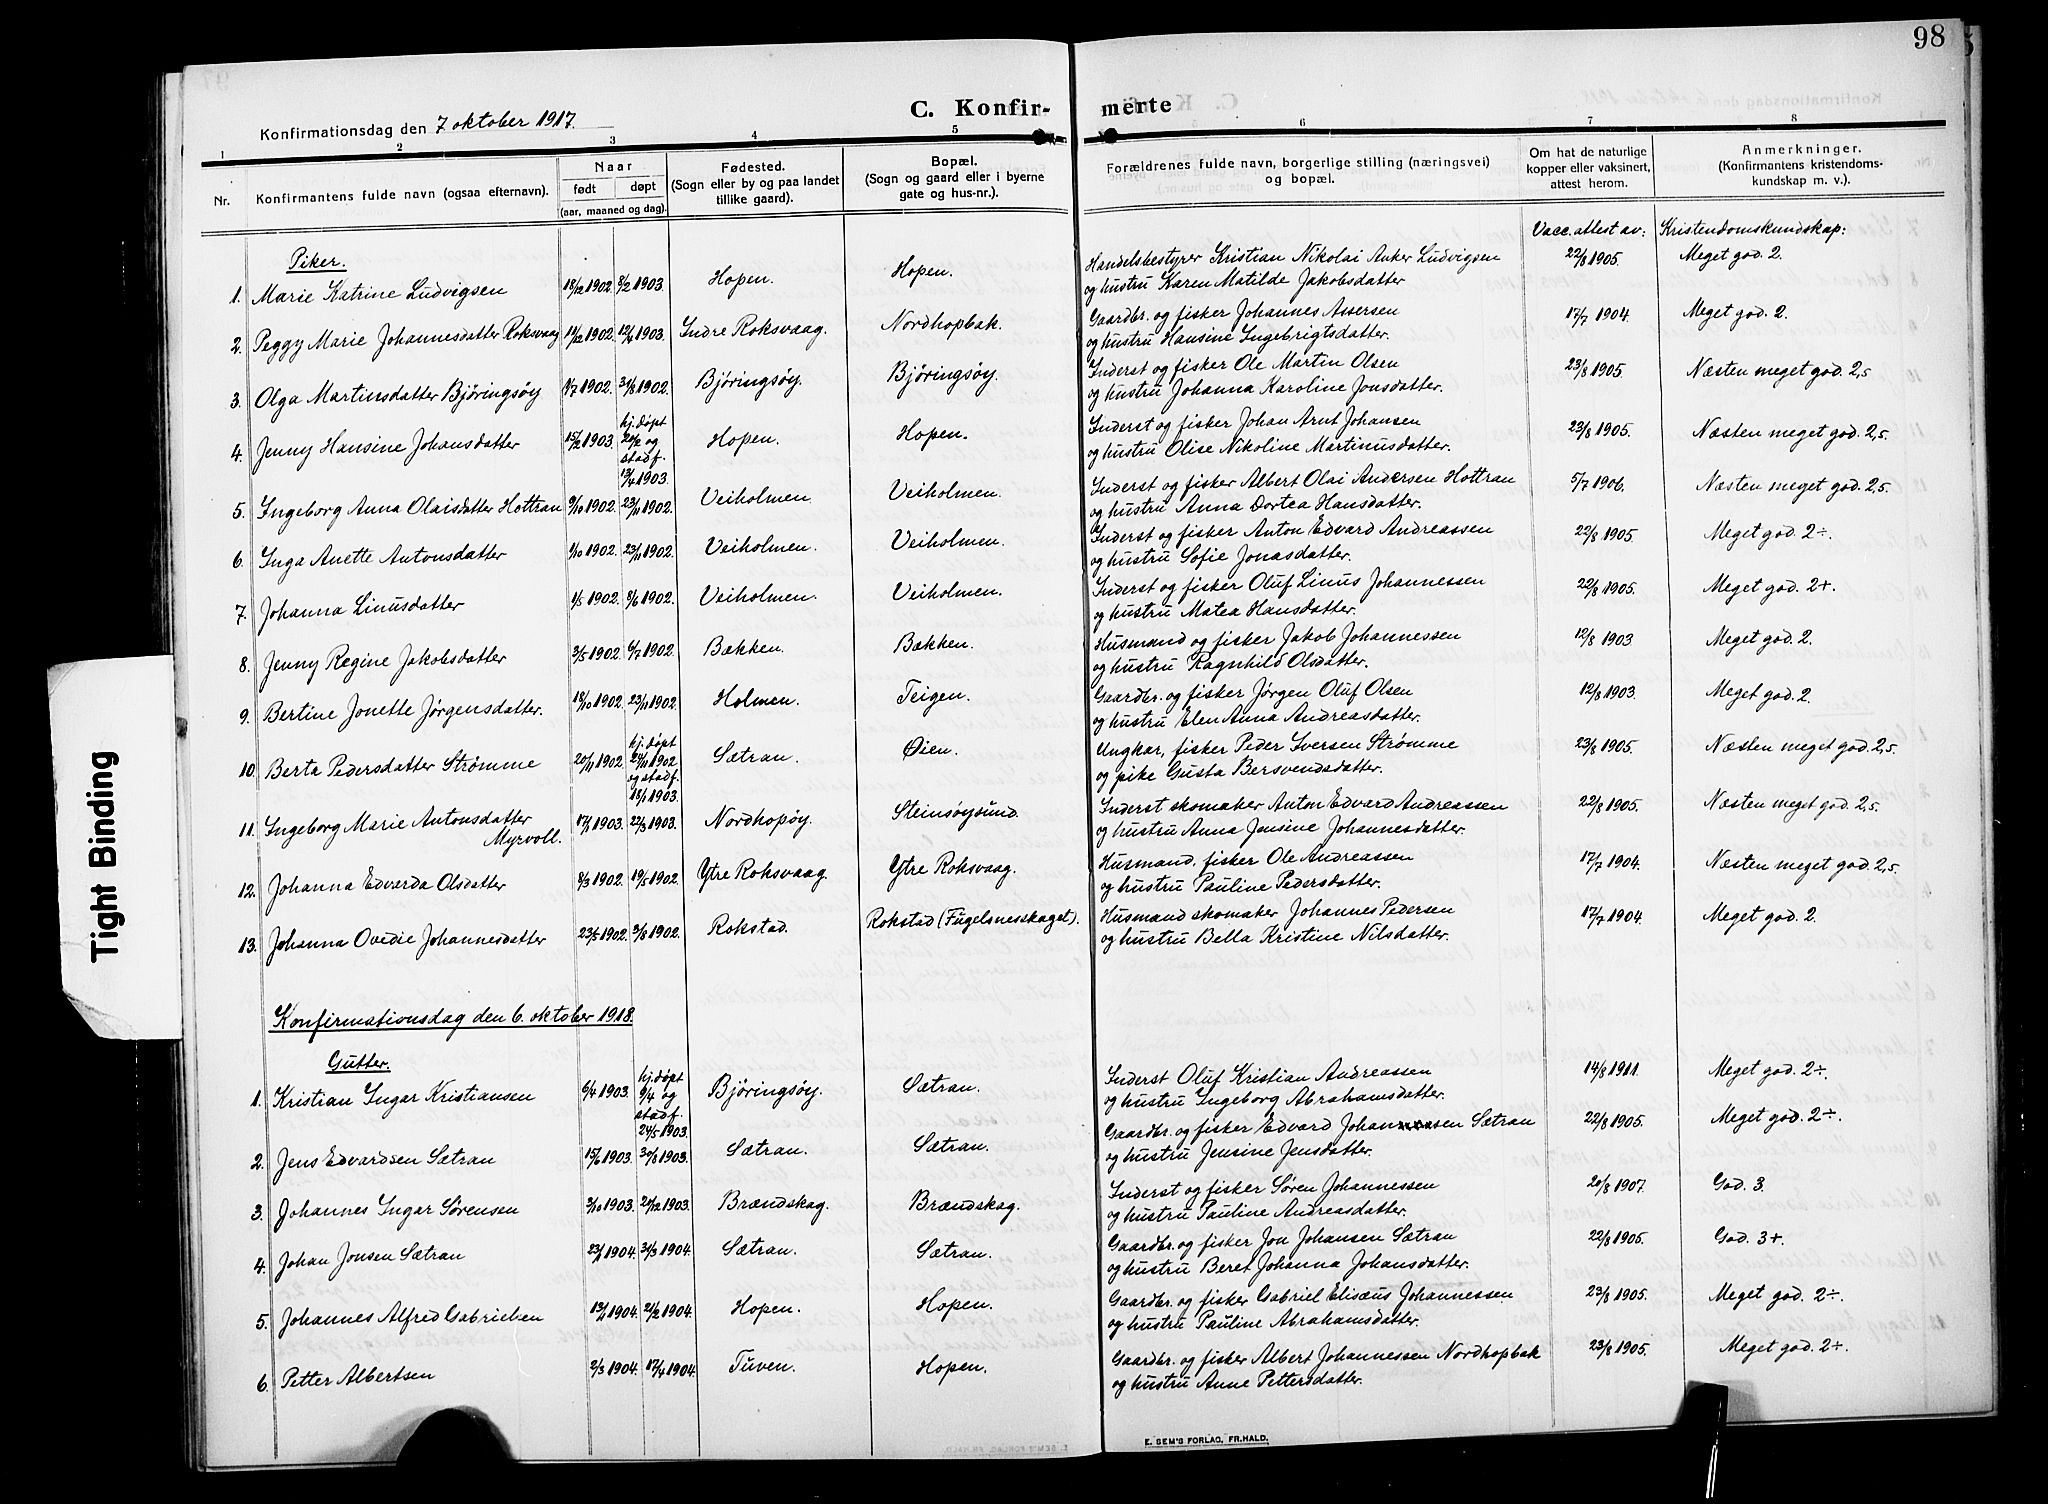 98
C. Konfir- merte
Konfirmationsdag den 7 oktober 1917.
1 2 3 4 5 6 7 8
Nr. Konfirmantens fulde navn (ogsaa efternavn). Naar født døpt (aar, maaned og dag). Fødested. (Sogn eller by og paa landet tillike gaard). Bopæl. (Sogn og gaard eller i byerne gate og hus-nr.). Forældrenes fulde navn, borgerlige stilling (næringsvei) og bopæl. Om hat de naturlige kopper eller vaksinert, attest herom. Anmerkninger. (Konfirmantens kristendoms-kundskap m. v.).
Vacc. attest av: Kristendomskundskap:
Piker.
1. Marie Katrine Ludvigsen 18/12 1902. 8/2 1903. Hopen. Hopen. Handelsbestyrer Kristian Nikolai Anker Ludvigsen 22/8 1905. Meget god. 2.
og hustru Karen Matilde Jakobsdatter
2. Peggy Marie Johannesdatter Roksvaag 11/12 1902. 12/4 1903. Indre Roksvaag. Nordhopbak. Gaardbr. og fisker Johannes Iversen 17/7 1904. Meget god. 2.
og hustru Hansine Ingebrigtsdatter.
3. Olga Martinsdatter Bjøringsøy 1/7 1902. 31/8 1902. Bjøringsøy. Bjøringsøy. Inderst og fisker Ole Martin Olsen 23/8 1905. Næsten meget god. 2,5
og hustru Johanna Karoline Jonsdatter.
4. Jenny Hansine Johansdatter 15/2 1903. hj. døpt 20/2 og stadf. 13/4 1903. Hopen. Hopen. Inderst og fisker Johan Arnt Johansen 23/8 1905. Næsten meget god. 2,5.
og hustru Olise Nikoline Martinusdatter.
5. Ingeborg Anna Olaisdatter Hottran 9/10 1902. 23/11 1902. Veiholmen. Veiholmen. Inderst og fisker Albert Olai Andersen Hottran 5/7 1906. Næsten meget god. 2,5.
og hustru Anna Dortea Hansdatter.
6. Inga Anette Antonsdatter 1/10 1902. 23/11 1902. Veiholmen. Veiholmen. Inderst og fisker Anton Edvard Andreassen 22/8 1905. Meget god. 2÷.
og hustru Sofie Jonasdatter.
7. Johanna Linusdatter 1/5 1902. 8/6 1902. Veiholmen. Veiholmen. Inderst og fisker Oluf Linus Johannessen 22/8 1905. Meget god. 2+.
og hustru Matea Hansdatter.
8. Jenny Regine Jakobsdatter 3/5 1902. 6/7 1902. Bækken. Bækken. Husmand og fisker Jakob Johannessen 12/8 1903 Meget god. 2.
og hustru Ragnhild Olsdatter.
9. Bertine Jonette Jørgensdatter. 18/10 1902. 23/11 1902. Holmen. Teigen. Gaardbr. og fisker Jørgen Oluf Olsen 12/8 1903. Meget god. 2.
og hustru Elen Anna Andreasdatter.
10. Berta Pedersdatter Strømme 20/11 1902. hj. døpt 24/11 1902 og stadf. 18/1 1903. Sætran. Øien. Ungkar, fisker Peder Iversen Strømme 23/8 1905. Næsten meget god. 2,5.
og pike Gusta Bersvendsdatter.
11. Ingeborg Marie Antonsdatter Myrvoll. 17/1 1903. 22/3 1903. Nordhopøy. Steinsøysund. Inderst skomaker Anton Edvard Andreassen 22/8 1905. Næsten meget god. 2,5.
og hustru Anna Jensine Johannesdatter.
12. Johanna Edvarda Olsdatter 8/3 1902. 19/5 1902. Ytre Roksvaag. Ytre Roksvaag. Husmand. fisker Ole Andreassen 17/7 1904. Næsten meget god. 2,5.
og hustru Pauline Pedersdatter.
13. Johanna Ovedie Johannesdatter 23/5 1902. 3/8 1902. Rokstad. Rokstad (Fuglsnesskaget). Husmand skomaker Johannes Pedersen 17/7 1904. Meget god. 2.
og hustru Bella Kristine Nilsdatter.
Konfirmationsdag den 6. oktober 1918.
Gutter.
1. Kristian Ingar Kristiansen 6/4 1903. hj. døpt 9/4 og stadf. 24/5 1903. Bjøringsøy. Sætran. Inderst Oluf Kristian Andreassen 14/8 1911. Meget god. 2÷.
og hustru Ingeborg Abrahamsdatter.
2. Jens Edvardsen Sætran 15/6 1903. 30/8 1903. Sætran. Sætran. Gaardbr. og fisker Edvard Johansen Sætran 22/8 1905. Meget god. 2÷.
og hustru Jensine Jensdatter.
3. Johannes Ingar Sørensen 3/10 1903. 21/12 1903. Brændskag. Brændskag. Inderst og fisker Søren Johannessen 20/8 1907. God. 3.
og hustru Pauline Andreasdatter.
4. Johan Jonsen Sætran 23/1 1904. 31/3 1904. Sætran. Sætran. Gaardbr. og fisker Jon Johansen Sætran 22/8 1905. God. 3+.
og hustru Beret Johanna Johansdatter.
5. Johannes Alfred Gabrielsen 13/1 1904. 21/2 1904. Hopen. Hopen. Gaardbr. og fisker Gabriel Elisæus Johannessen 23/8 1905. Meget god. 2÷.
og hustru Pauline Abrahamsdatter.
6. Petter Albertsen 2/3 1904. 17/4 1904. Tuven. Hopen. Gaardbr. og fisker Albert Johannessen Nordhopbak 23/8 1905. Meget god. 2+.
og hustru Anne Pettersdatter.
E. SEM'S FORLAG, FR.HALD.
Tight Binding